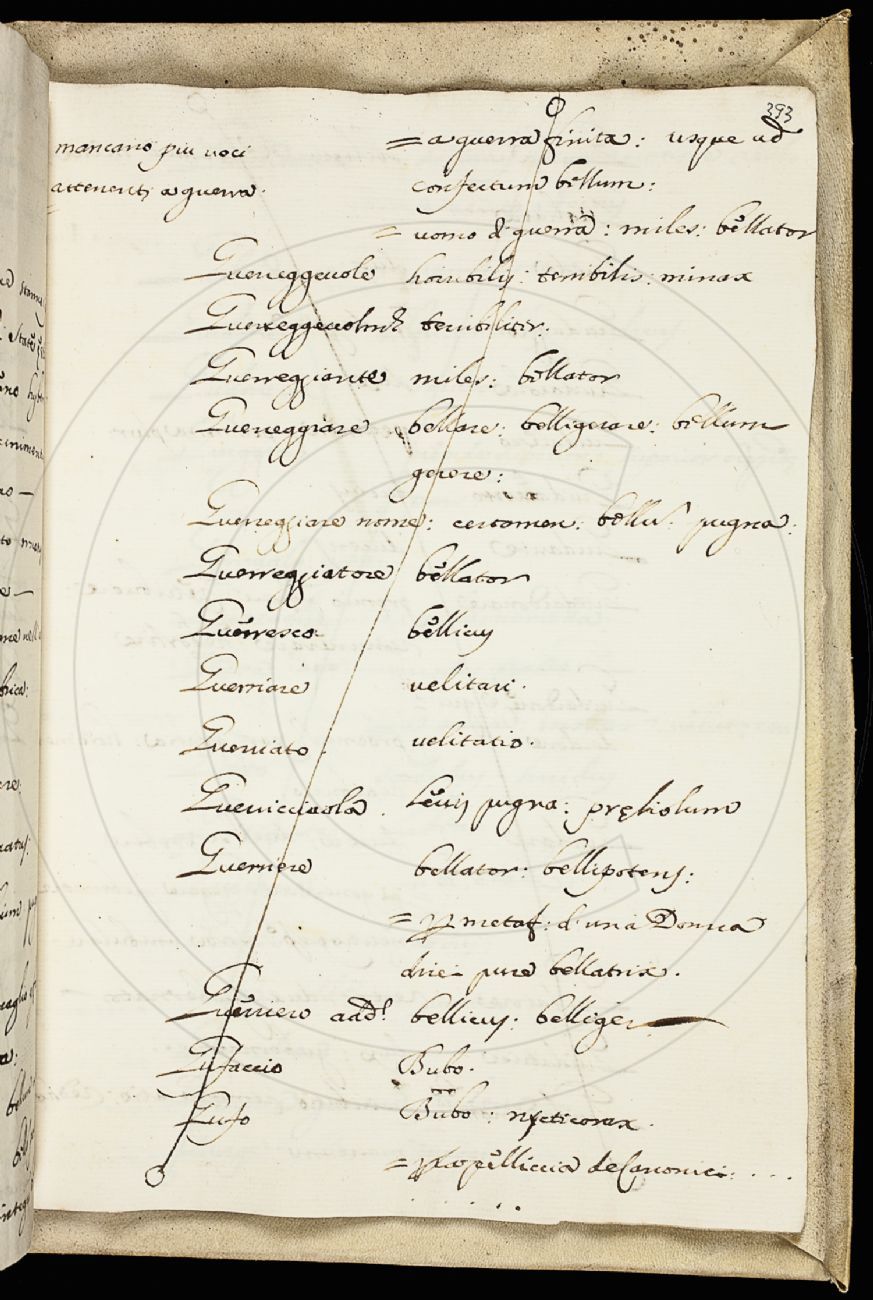 393
mancano piu voci
attenenti a guerra.
= a guerra finita: usque ad
confectum bellum:
= uomo di guerra: miles: bellator
Guerreggevole horribilis: terribilis: minax
Guerreggevolmte terribiliter.
Guerreggiante miles: bellator
Guerreggiare bellare: belligerare: bellum
gerere:
Guerreggiare nome: certamen: bellum: pugna:
Guerreggiatore bellator
Guerresco bellicus
Guerriare velitari.
Guerriato. velitatio.
Guerricciuola. Levis pugna: pręliolum
Guerriere bellator: bellipotens:
= p metaf: d'una Donna
dire pure bellatrix.
Guerriero add: bellicus: belliger
Gufaccio Bubo.
Gufo Bubo: nycticorax.
= p la pelliccia de Canonici: . . .